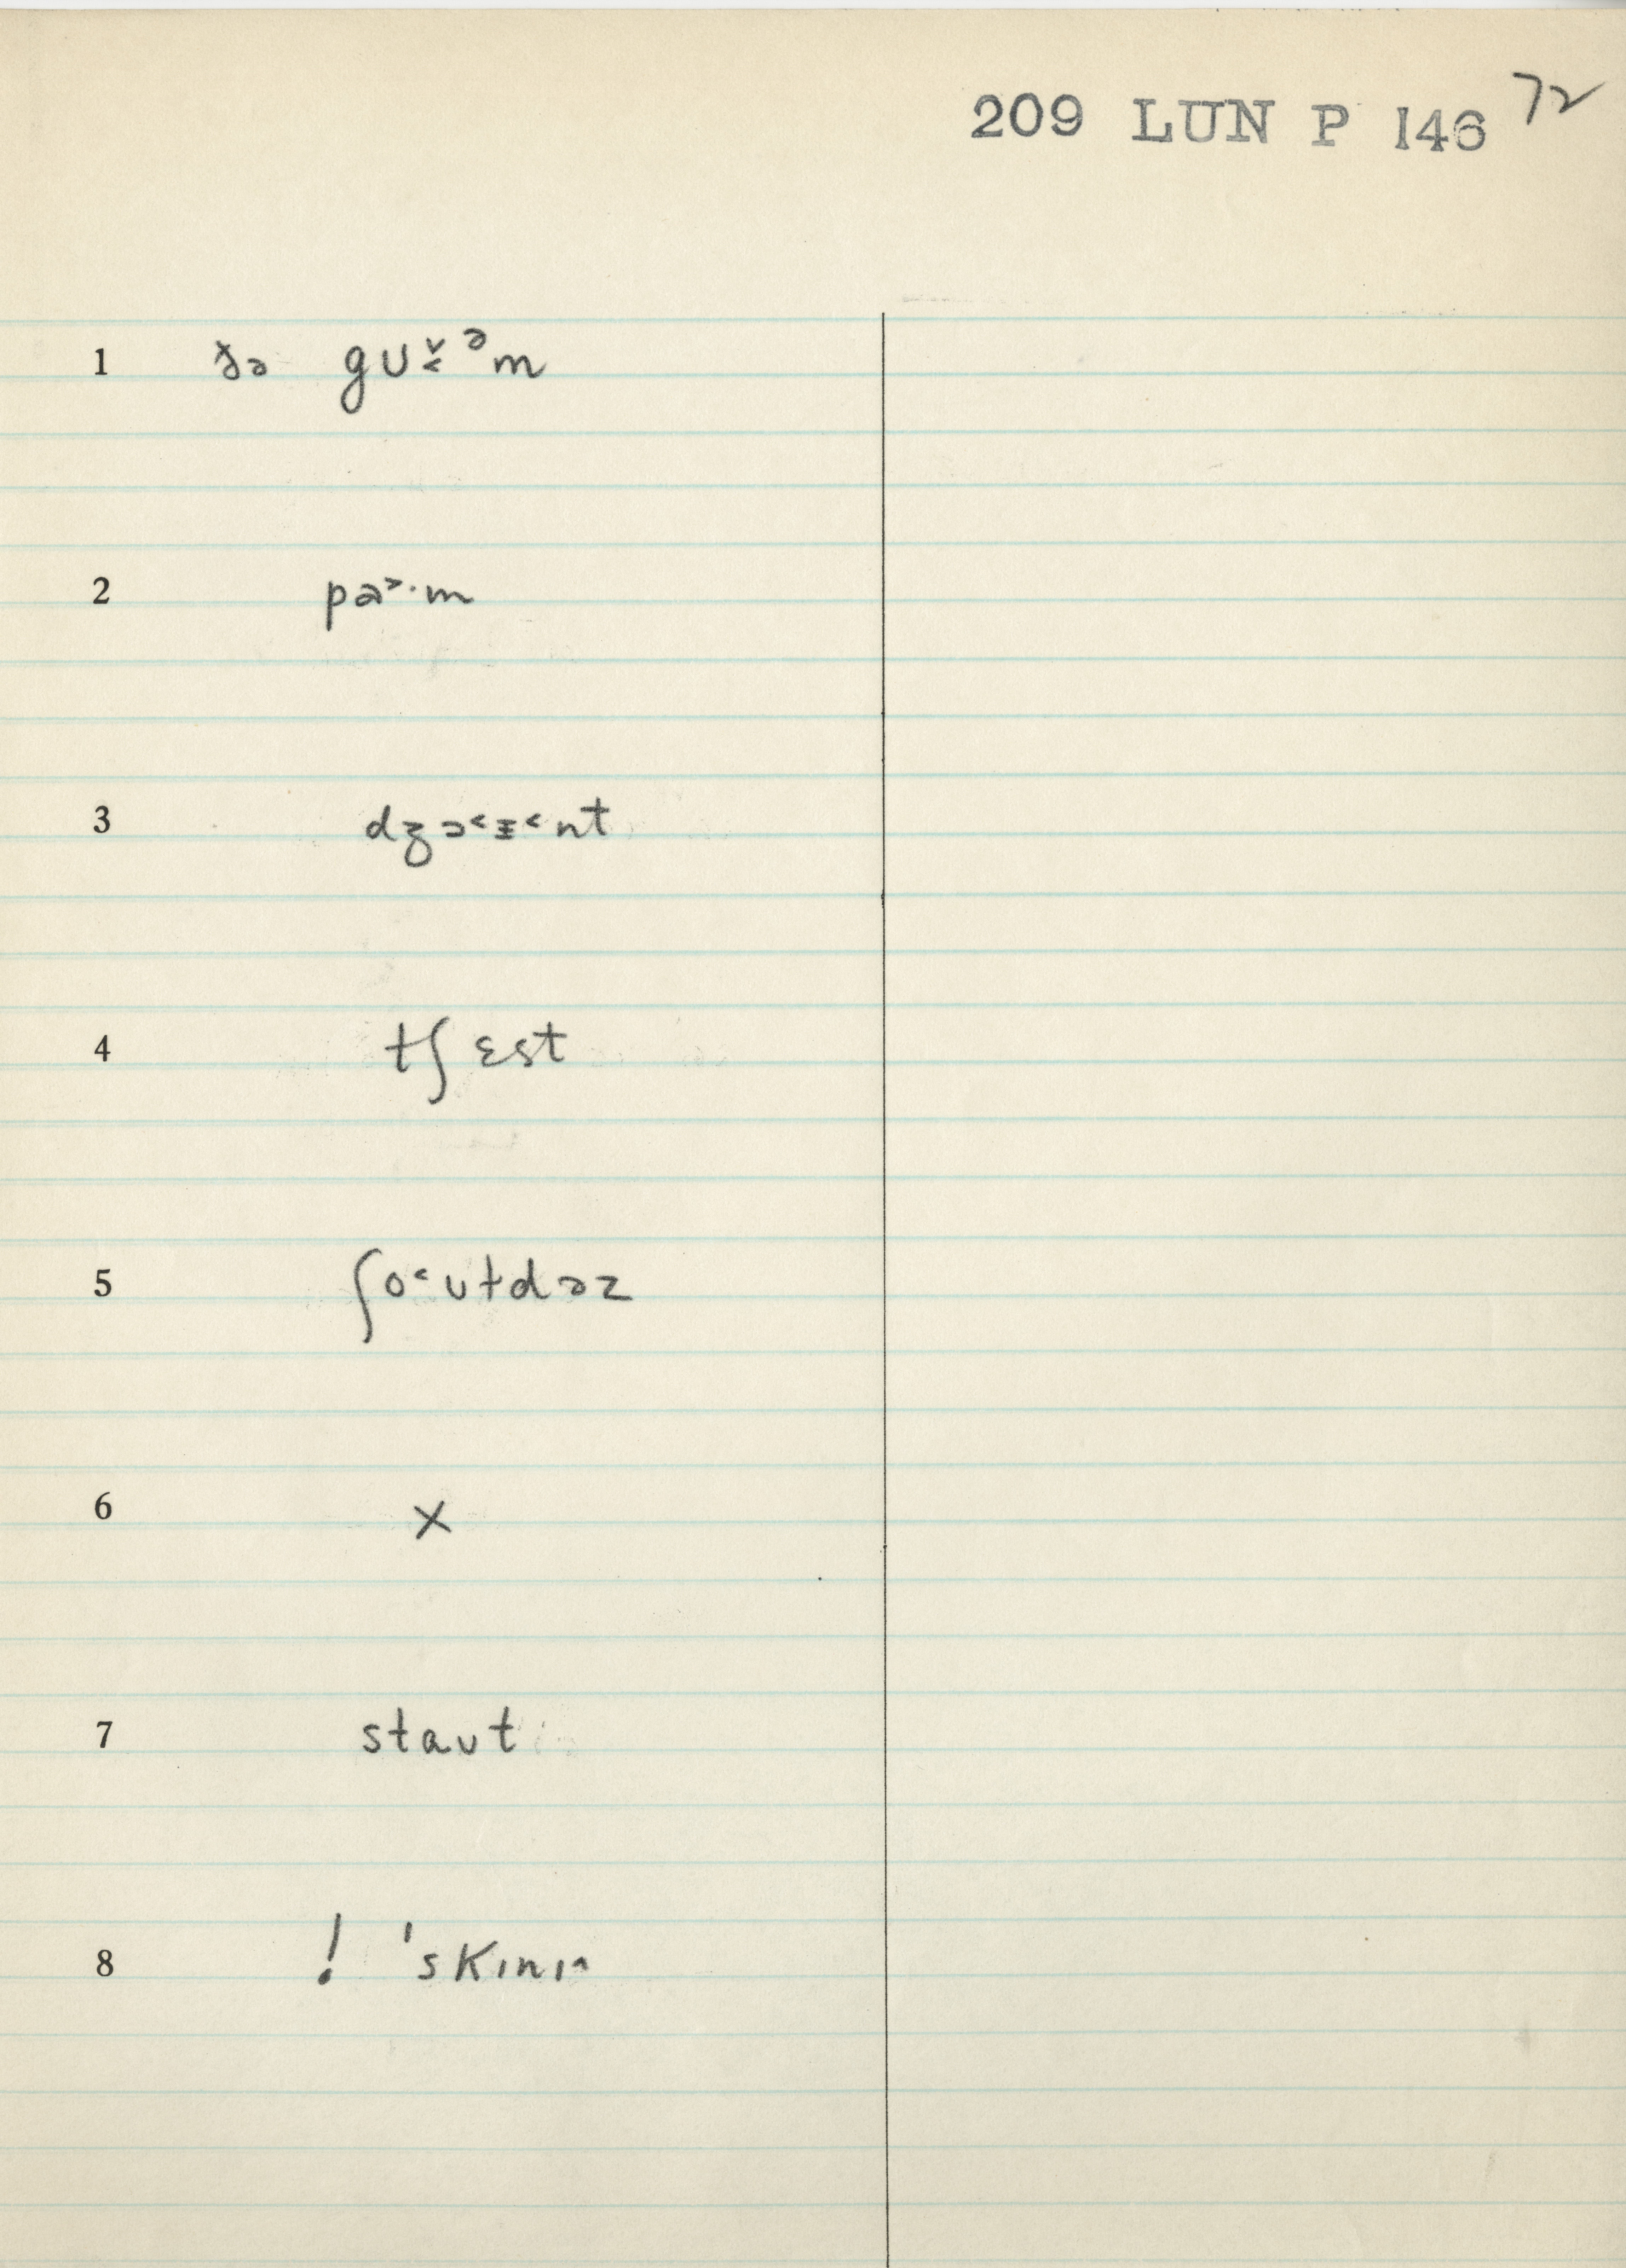 209 LUN P 146 72
1 ðə gu˅˂ᵊm
2 pa˃·m
3 dʒɔ˂ɪ˂nt
4 tʃɛst
5 ʃo˂ʊɫdəz
6 x
7 staʊt
8 ! 'skɪnɪ^